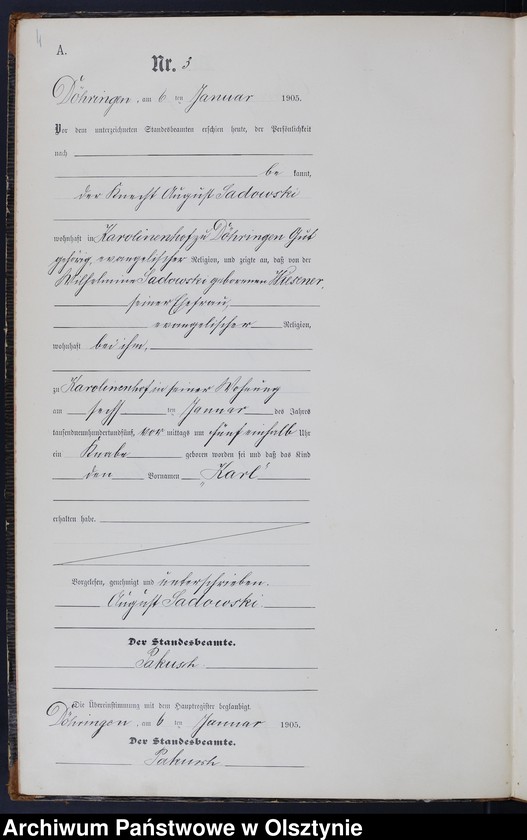 4
A.
Nr. 3
Döhringen, am 6 ten Januar 1905.
Vor dem unterzeichneten Standesbeamten erschien heute, der Persönlichkeit
nach
be kannt,
der Knecht August Sadowski
wohnhaft in Karolinenhof zu Döhringen Gut
gehörig, evangelischer Religion, und zeigte an, daß von der
Wilhelmine Sadowski geborenen Wiesener,
seiner Ehefrau,
evangelischer Religion,
wohnhaft bei ihm,
zu Karolinenhof in seiner Wohnung
am sechs ten Januar des Jahres
tausendneunhundertundfünf, vor mittags um fünf einhalb Uhr
ein Knabe geboren worden sei und daß das Kind
den Vornamen „Karl“
erhalten habe.
Vorgelesen, genehmigt und unterschrieben.
August Sadowski
Der Standesbeamte.
Pakusch
Die Übereinstimmung mit dem Hauptregister beglaubigt
Döhringen, am 6 ten Januar 1905.
Der Standesbeamte.
Pakusch
Archiwum Państwowe w Olsztynie